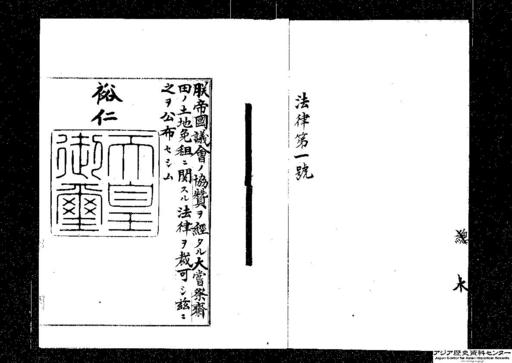 法律第一號
朕帝國議會ノ協贊ヲ經タル大嘗祭齋
田ノ土地免租ニ關スル法律ヲ裁可シ茲ニ
之ヲ公布セシム
裕仁
天皇
御璽
アジア歴史資料センター
Japan Center for Asian Historical Records